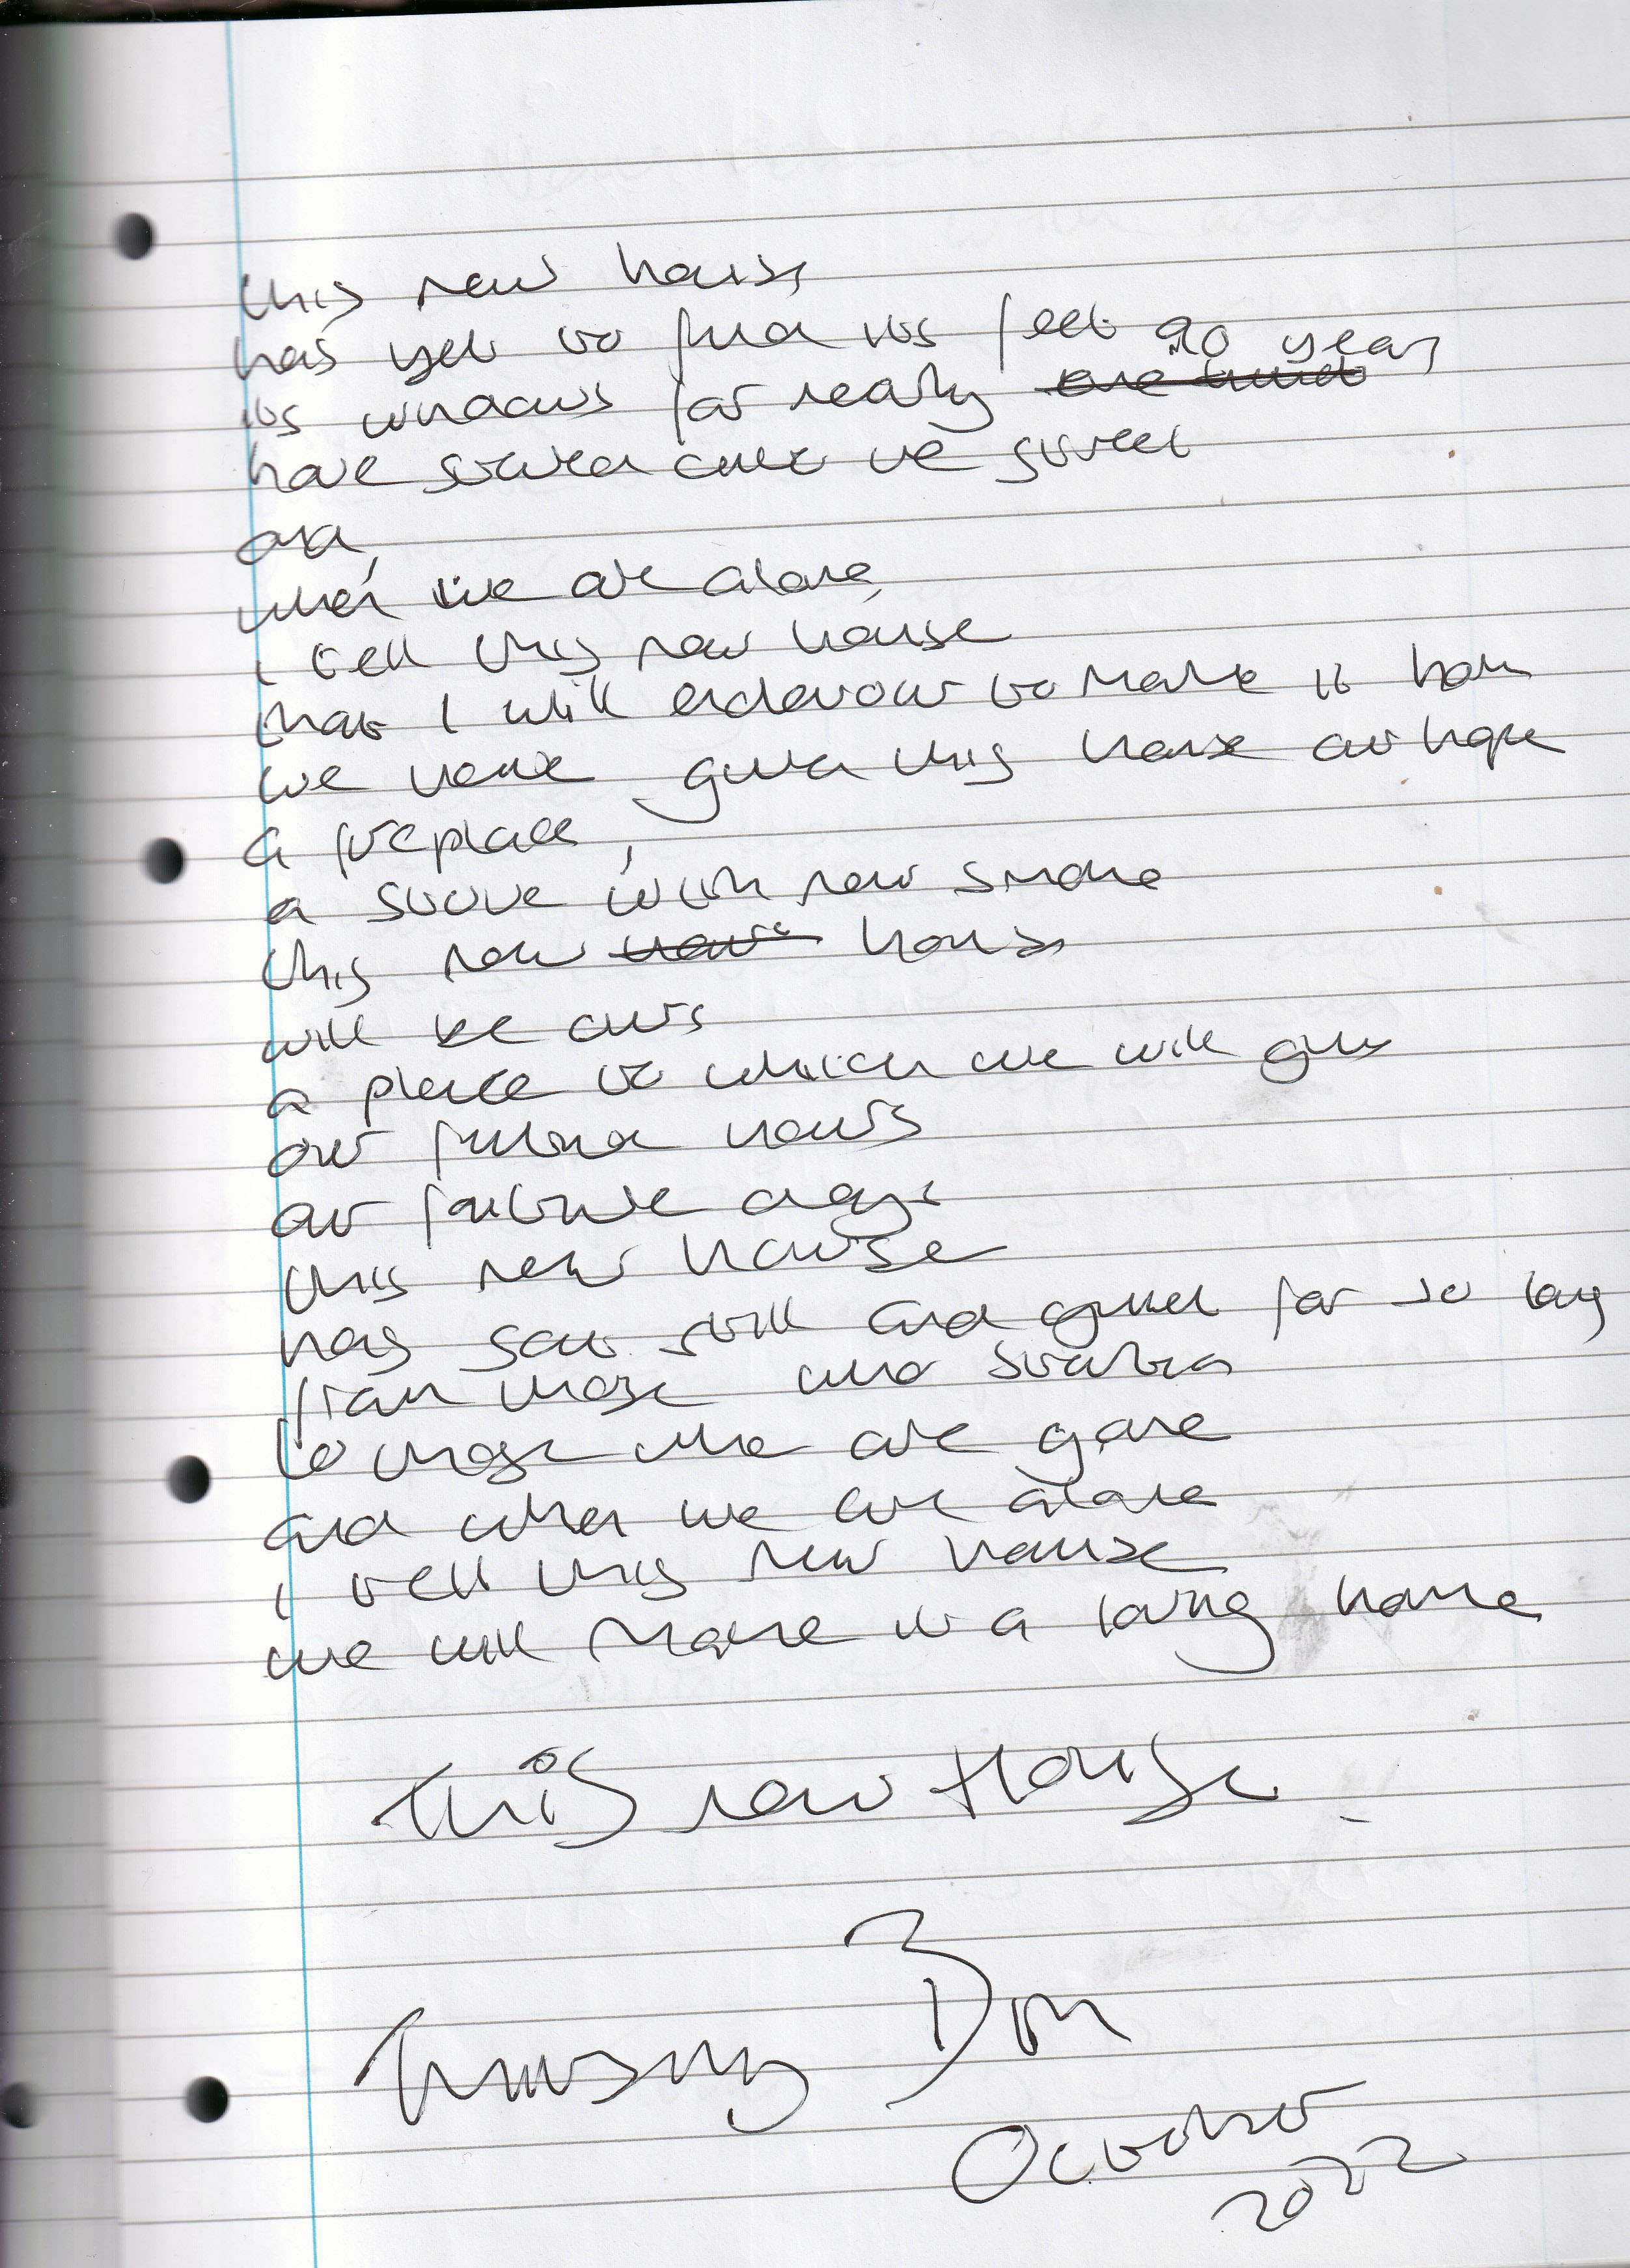 this new house
has yet to find its feet 90 years
its windows for nearly
have stared out the street
and,
when we are alone,
i tell this new house
that I will endevour to make it home
we have given this house our hope
a fireplace,
a stove with new smoke
this new house
will be ours
a place to which we will give
our future hours
our future days
this new house
has sat still and quiet for so long
from those who
to those who are gone
and when we are alone
i tell this new house
we will make it a loving home
This new House
October
2022